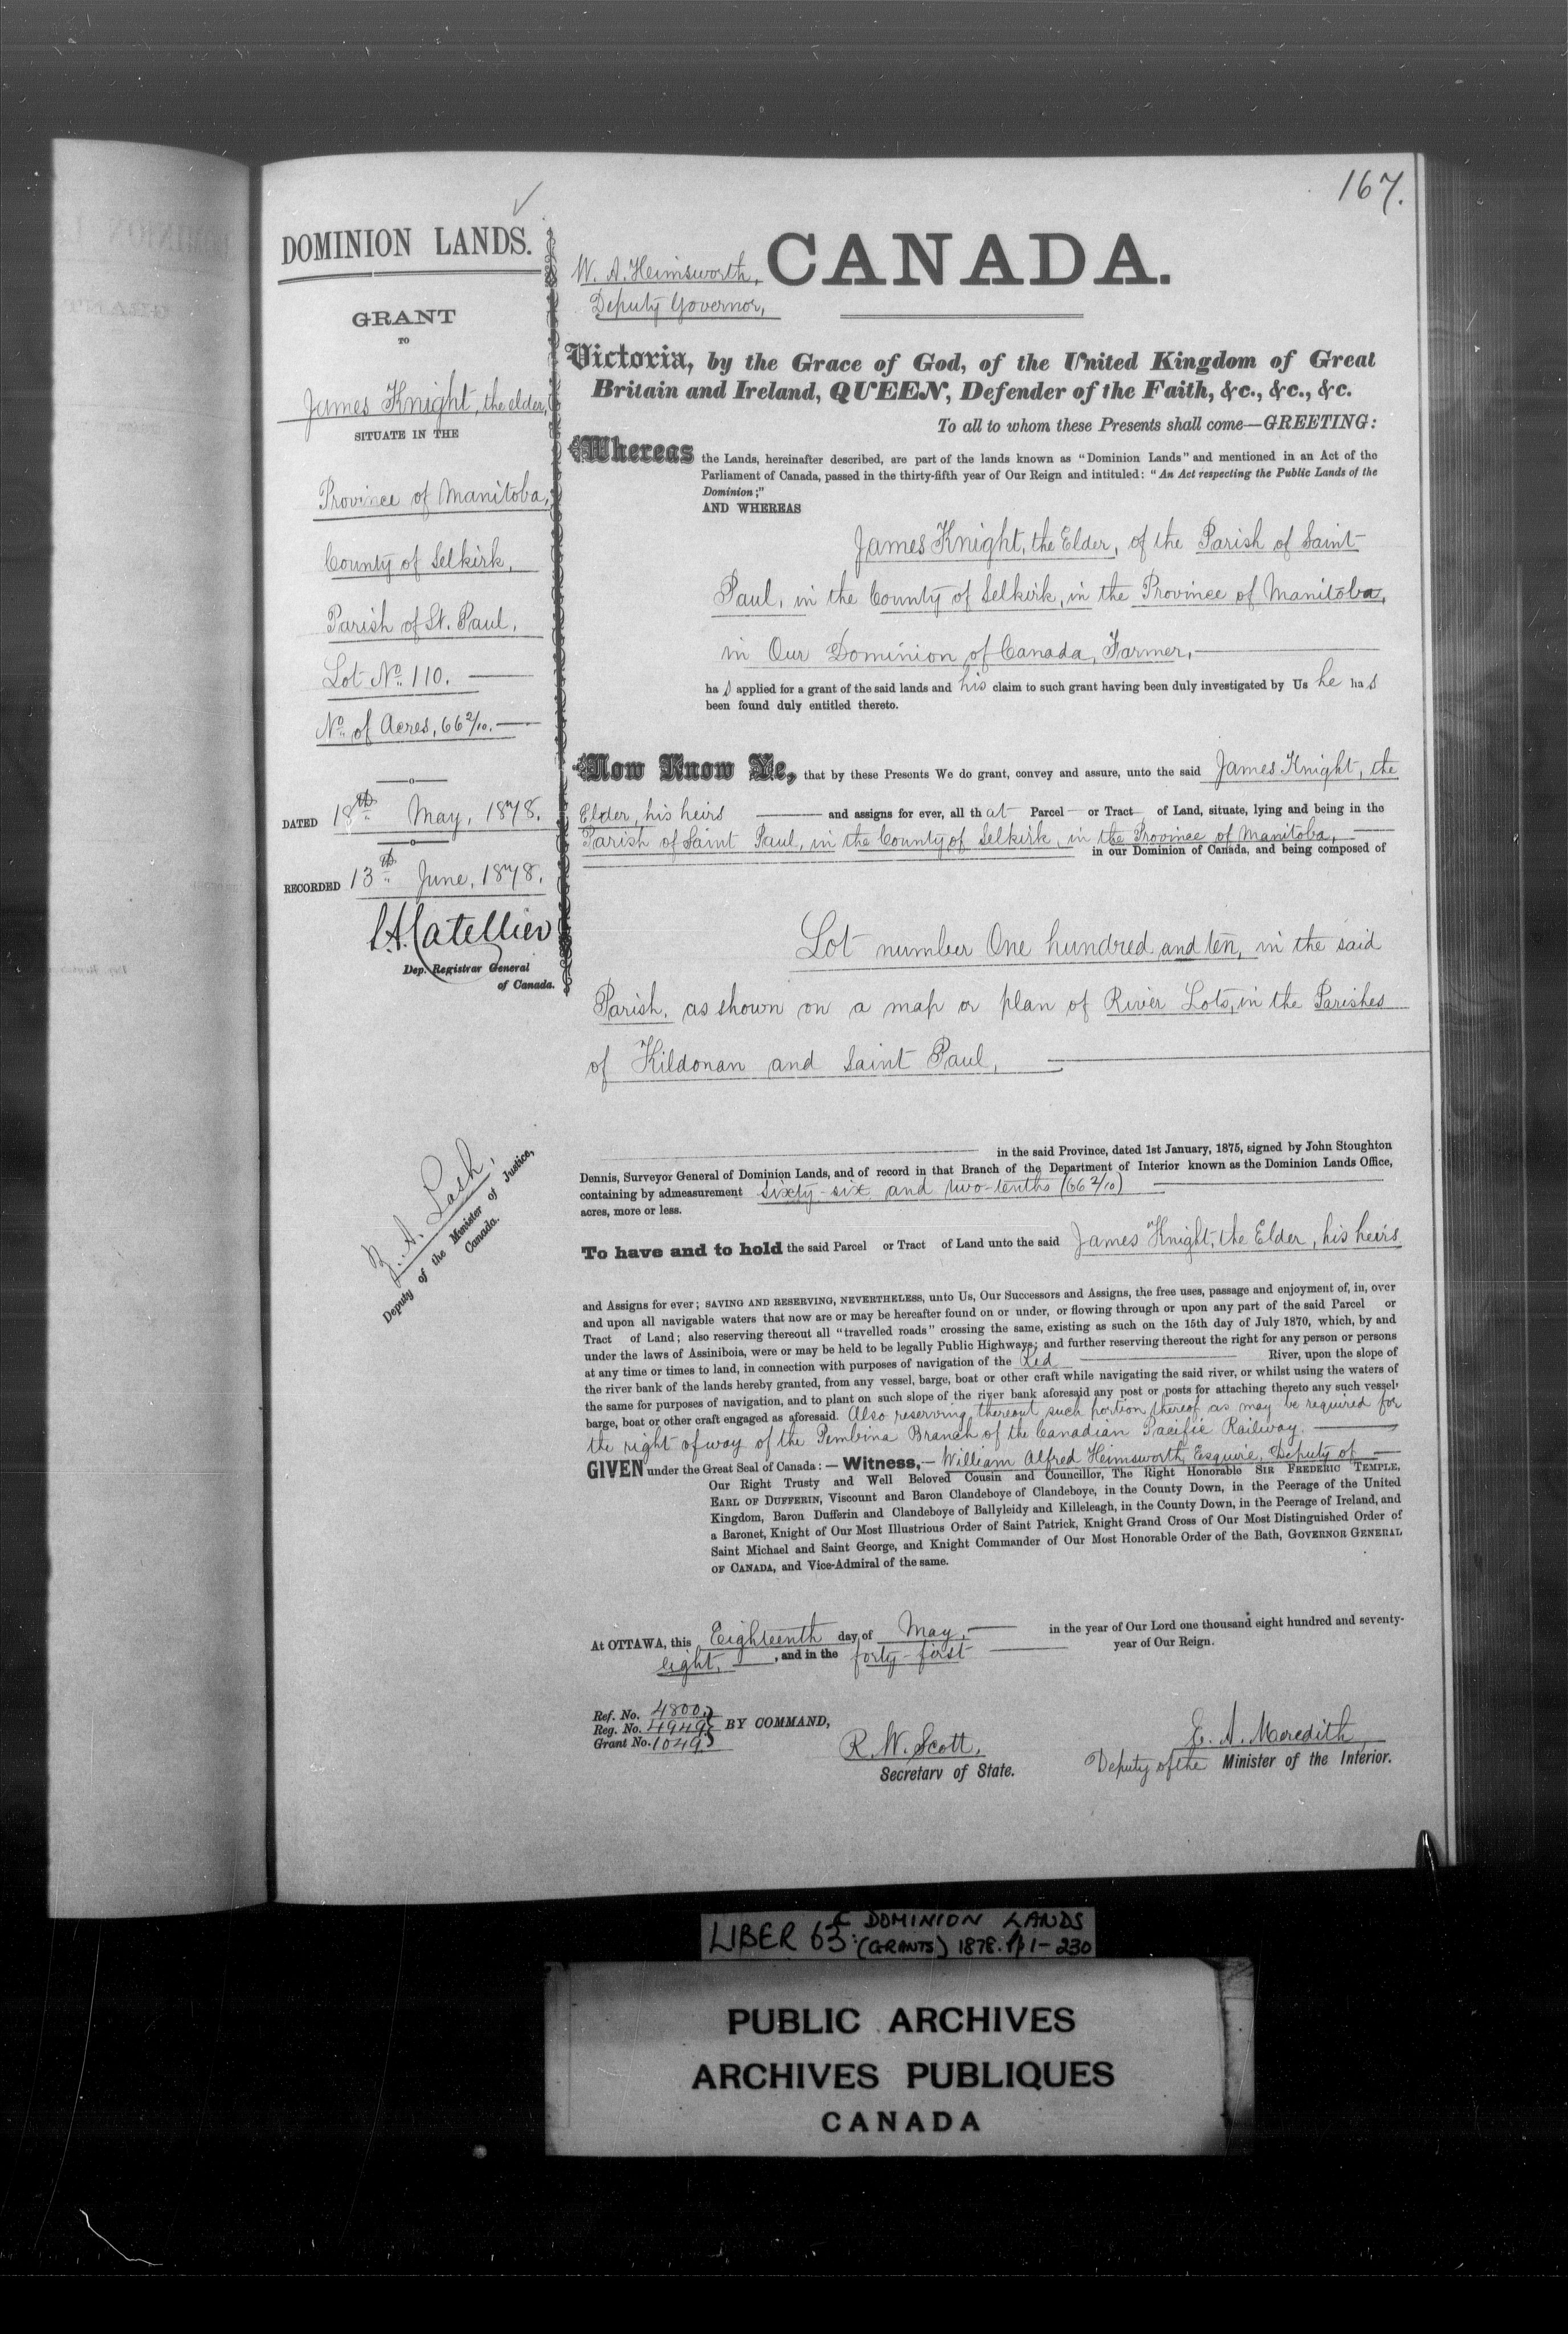 167.
DOMINION LANDS.
GRANT
TO
James Knight, the elder,
SITUATE IN THE
Province of Manitoba,
County of Selkirk,
Parish of St. Paul,
Lot No. 110.
No. of Acres, 66 2/10.
DATED 18th May, 1878.
RECORDED 13th June, 1878.
Dep. Registrar General
of Canada.
Z. A. Lash,
Deputy of the Minister of Justice,
Canada.
W. A. Himsworth,
Deputy Governor,
CANADA.
Victoria, by the Grace of God, of the United Kingdom of Great
Britain and Ireland, QUEEN, Defender of the Faith, &c., &c., &c.
To all to whom these Presents shall come—GREETING:
Whereas the Lands, hereinafter described, are part of the lands known as "Dominion Lands" and mentioned in an Act of the
Parliament of Canada, passed in the thirty-fifth year of Our Reign and intituled: "An Act respecting the Public Lands of the
Dominion;"
AND WHEREAS
James Knight, the Elder, of the Parish of Saint
Paul, in the County of Selkirk, in the Province of Manitoba,
in Our Dominion of Canada, Farmer,
ha s applied for a grant of the said lands and his claim to such grant having been duly investigated by Us he ha s
been found duly entitled thereto.
Now Know Ye, that by these Presents We do grant, convey and assure, unto the said James Knight, the
Elder, his heirs and assigns for ever, all that Parcel or Tract of Land, situate, lying and being in the
Parish of Saint Paul, in the County of Selkirk, in the Province of Manitoba,
in our Dominion of Canada, and being composed of
Lot number One hundred and ten, in the said
Parish, as shown on a map or plan of River Lots, in the Parishes
of Kildonan and Saint Paul,
in the said Province, dated 1st January, 1875, signed by John Stoughton
Dennis, Surveyor General of Dominion Lands, and of record in that Branch of the Department of Interior known as the Dominion Lands Office,
containing by admeasurement sixty-six and two-tenths (66 2/10)
acres, more or less.
To have and to hold the said Parcel or Tract of Land unto the said James Knight, the Elder, his heirs
and Assigns for ever; SAVING AND RESERVING, NEVERTHELESS, unto Us, Our Successors and Assigns, the free uses, passage and enjoyment of, in, over
and upon all navigable waters that now are or may be hereafter found on or under, or flowing through or upon any part of the said Parcel or
Tract of Land; also reserving thereout all "travelled roads" crossing the same, existing as such on the 15th day of July 1870, which, by and
under the laws of Assiniboia, were or may be held to be legally Public Highways; and further reserving thereout the right for any person or persons
at any time or times to land, in connection with purposes of navigation of the Red River, upon the slope of
the river bank of the lands hereby granted, from any vessel, barge, boat or other craft while navigating the said river, or whilst using the waters of
the same for purposes of navigation, and to plant on such slope of the river bank aforesaid any post or posts for attaching thereto any such vessel,
barge, boat or other craft engaged as aforesaid. Also reserving thereout such portion thereof as may be required for
the right of way of the Pembina Branch of the Canadian Pacific Railway.
GIVEN under the Great Seal of Canada:—Witness,—William Alfred Himsworth, Esquire, Deputy of
Our Right Trusty and Well Beloved Cousin and Councillor, The Right Honorable SIR FREDERIC TEMPLE,
EARL OF DUFFERIN, Viscount and Baron Clandeboye of Clandeboye, in the County Down, in the Peerage of the United
Kingdom, Baron Dufferin and Clandeboye of Ballyleidy and Killeleagh, in the County Down, in the Peerage of Ireland, and
a Baronet, Knight of Our Most Illustrious Order of Saint Patrick, Knight Grand Cross of Our Most Distinguished Order of
Saint Michael and Saint George, and Knight Commander of Our Most Honorable Order of the Bath, GOVERNOR GENERAL
OF CANADA, and Vice-Admiral of the same.
At OTTAWA, this Eighteenth day of May, in the year of Our Lord one thousand eight hundred and seventy-
eight, and in the forty-first year of Our Reign.
Ref. No. 4800
Reg. No. 4949
Grant No. 1049
BY COMMAND,
R. W. Scott,
Secretary of State.
E. A. Meredith
Deputy of the Minister of the Interior.
LIBER 63: DOMINION LANDS
(GRANTS) 1878. pp 1-230
PUBLIC ARCHIVES
ARCHIVES PUBLIQUES
CANADA